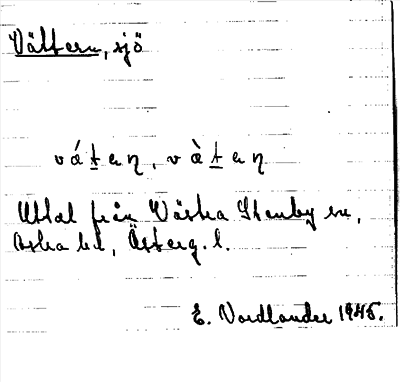 Vättern, sjö
vá t e ɳ, v à t e ɳ
Uttal från Västra Stenby sn,
Aska hd, Österg. l.
E. Nordlander 1945.